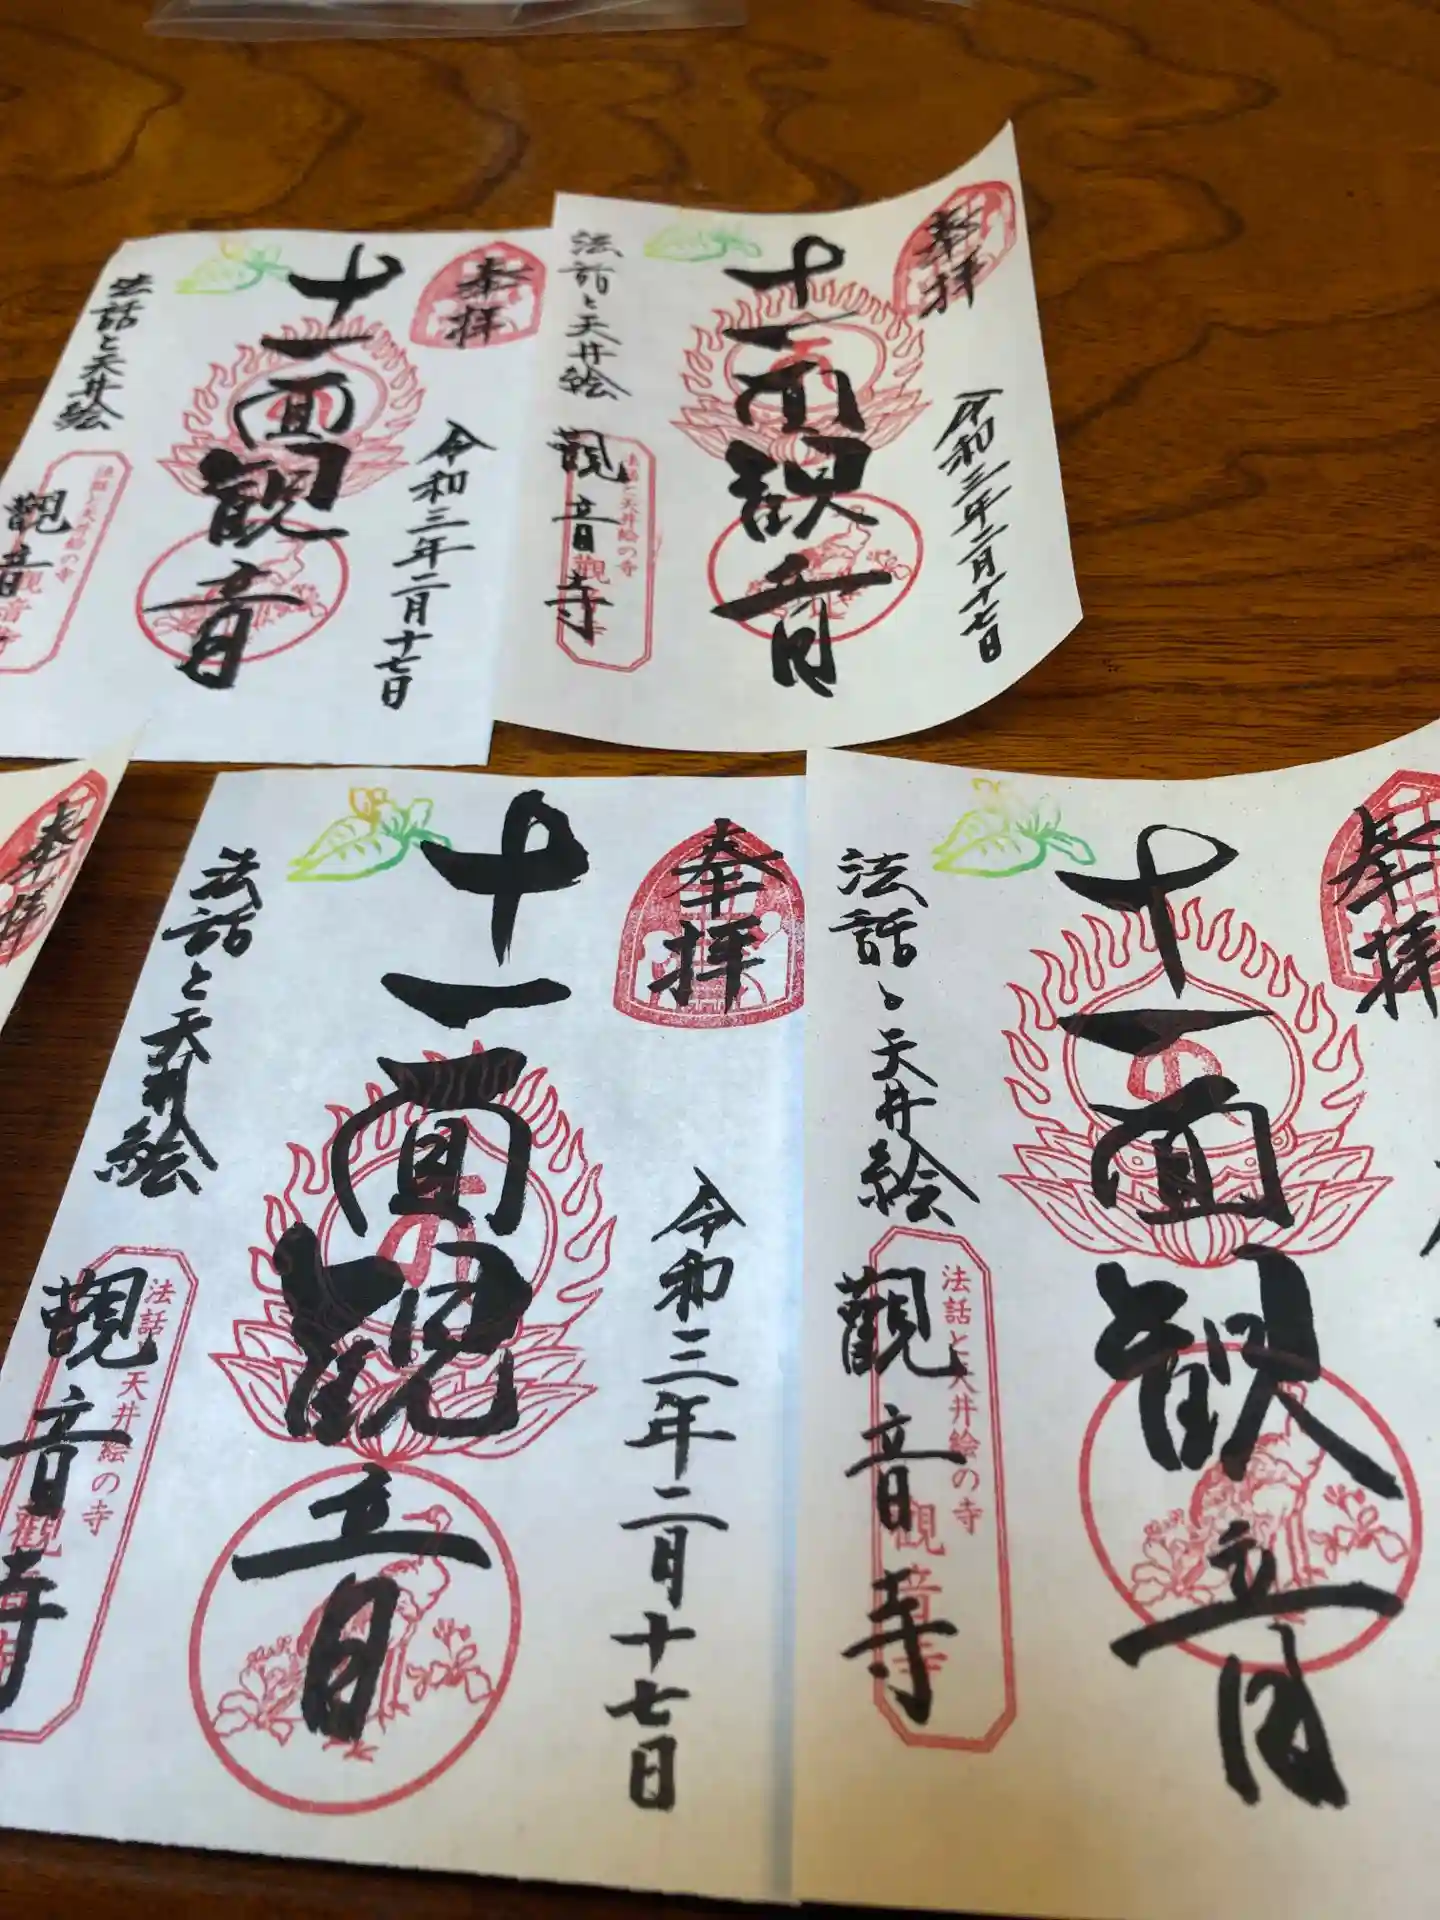 奉拝
十一面観音
令和三年二月十七日
法話と天井絵
觀音
法話と天井絵の寺
奉拝
十一面観音
令和三年二月十七日
法話と天井絵
觀音寺
法話と天井絵の寺
觀
奉拝
奉拝
十一面観音
令和三年二月十七日
法話と天井絵
觀音寺
法話と天井絵の寺
觀
奉拝
十一面観音
法話と天井絵
觀音寺
法話と天井絵の寺
觀音寺